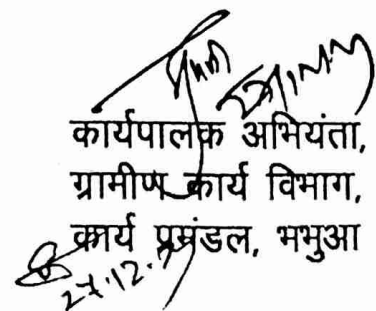 कार्यपालक अभियंता,
ग्रामीण कार्य विभाग,
कार्य प्रमंडल, भभुआ
27.12.